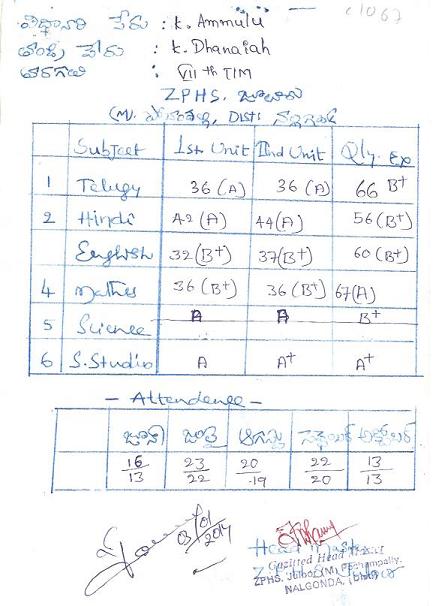 c1067
విద్యార్థి పేరు : K. Ammulu
తండ్రి పేరు : K. Dhanaiah
తరగతి : VII th TIM
ZPHS. జూలూరు
(M). పోచంపల్లి, Dist: నల్లగొండ
Subject 1st Unit IInd Unit Qly. Ex
1 Telugu 36 (A) 36 (A) 66 B+
2 Hindi 42 (A) 44 (A) 56 (B+)
English 32 (B+) 37 (B+) 60 (B+)
4 Maths 36 (B+) 36 (B+) 67 (A)
5 Science A A B+
6 S. Studis A A+ A+
- Attendence -
జూన్ జూలై ఆగస్టు సెప్టెంబర్ అక్టోబర్
16 23 20 22 13
13 22 19 20 13
03/01
2014
Head
Gazitted Head
ZPHS, (M) Pochampally,
NALGONDA.